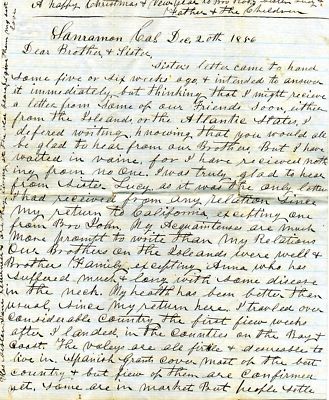 A happy Christmas & New year to
Mother & the Children
Sanramon Cal Dec, 20th 1856
Dear Brother & Sister,
Sisters letter came to hand
some five or six weeks ago, & intended to answer
it immediately, but thinking that I might recieve
a letter from some of our Friends soon, either
from the Islands, or the Atlantic States, I
defered writing, knowing that you would all
be glad to hear from our Brothers, But I have
waited in vaine, for I have recieved not
ing from no One. I was truly glad to hear
from Sister Lucy, as it was the only letter
I had received from any relation since
my return to California excepting one
from Bro John, My Acquaintences are much
more prompt to write than my Relations
Our Brothers on the Isleands were well &
Brothers Family, excepting Anna who has
suffered much & long with some disease
in the neck. My health has been better than
usual, since my return here. I traveled over
considerable Country the first fiew weeks
after I landed, in the Counties on the Bay &
Coast. The valeys are all fertile & desireable to
live in. Spanish Grants cover most of the best
country & but fiew of them are Confirmed
yet, some are in market But people settle